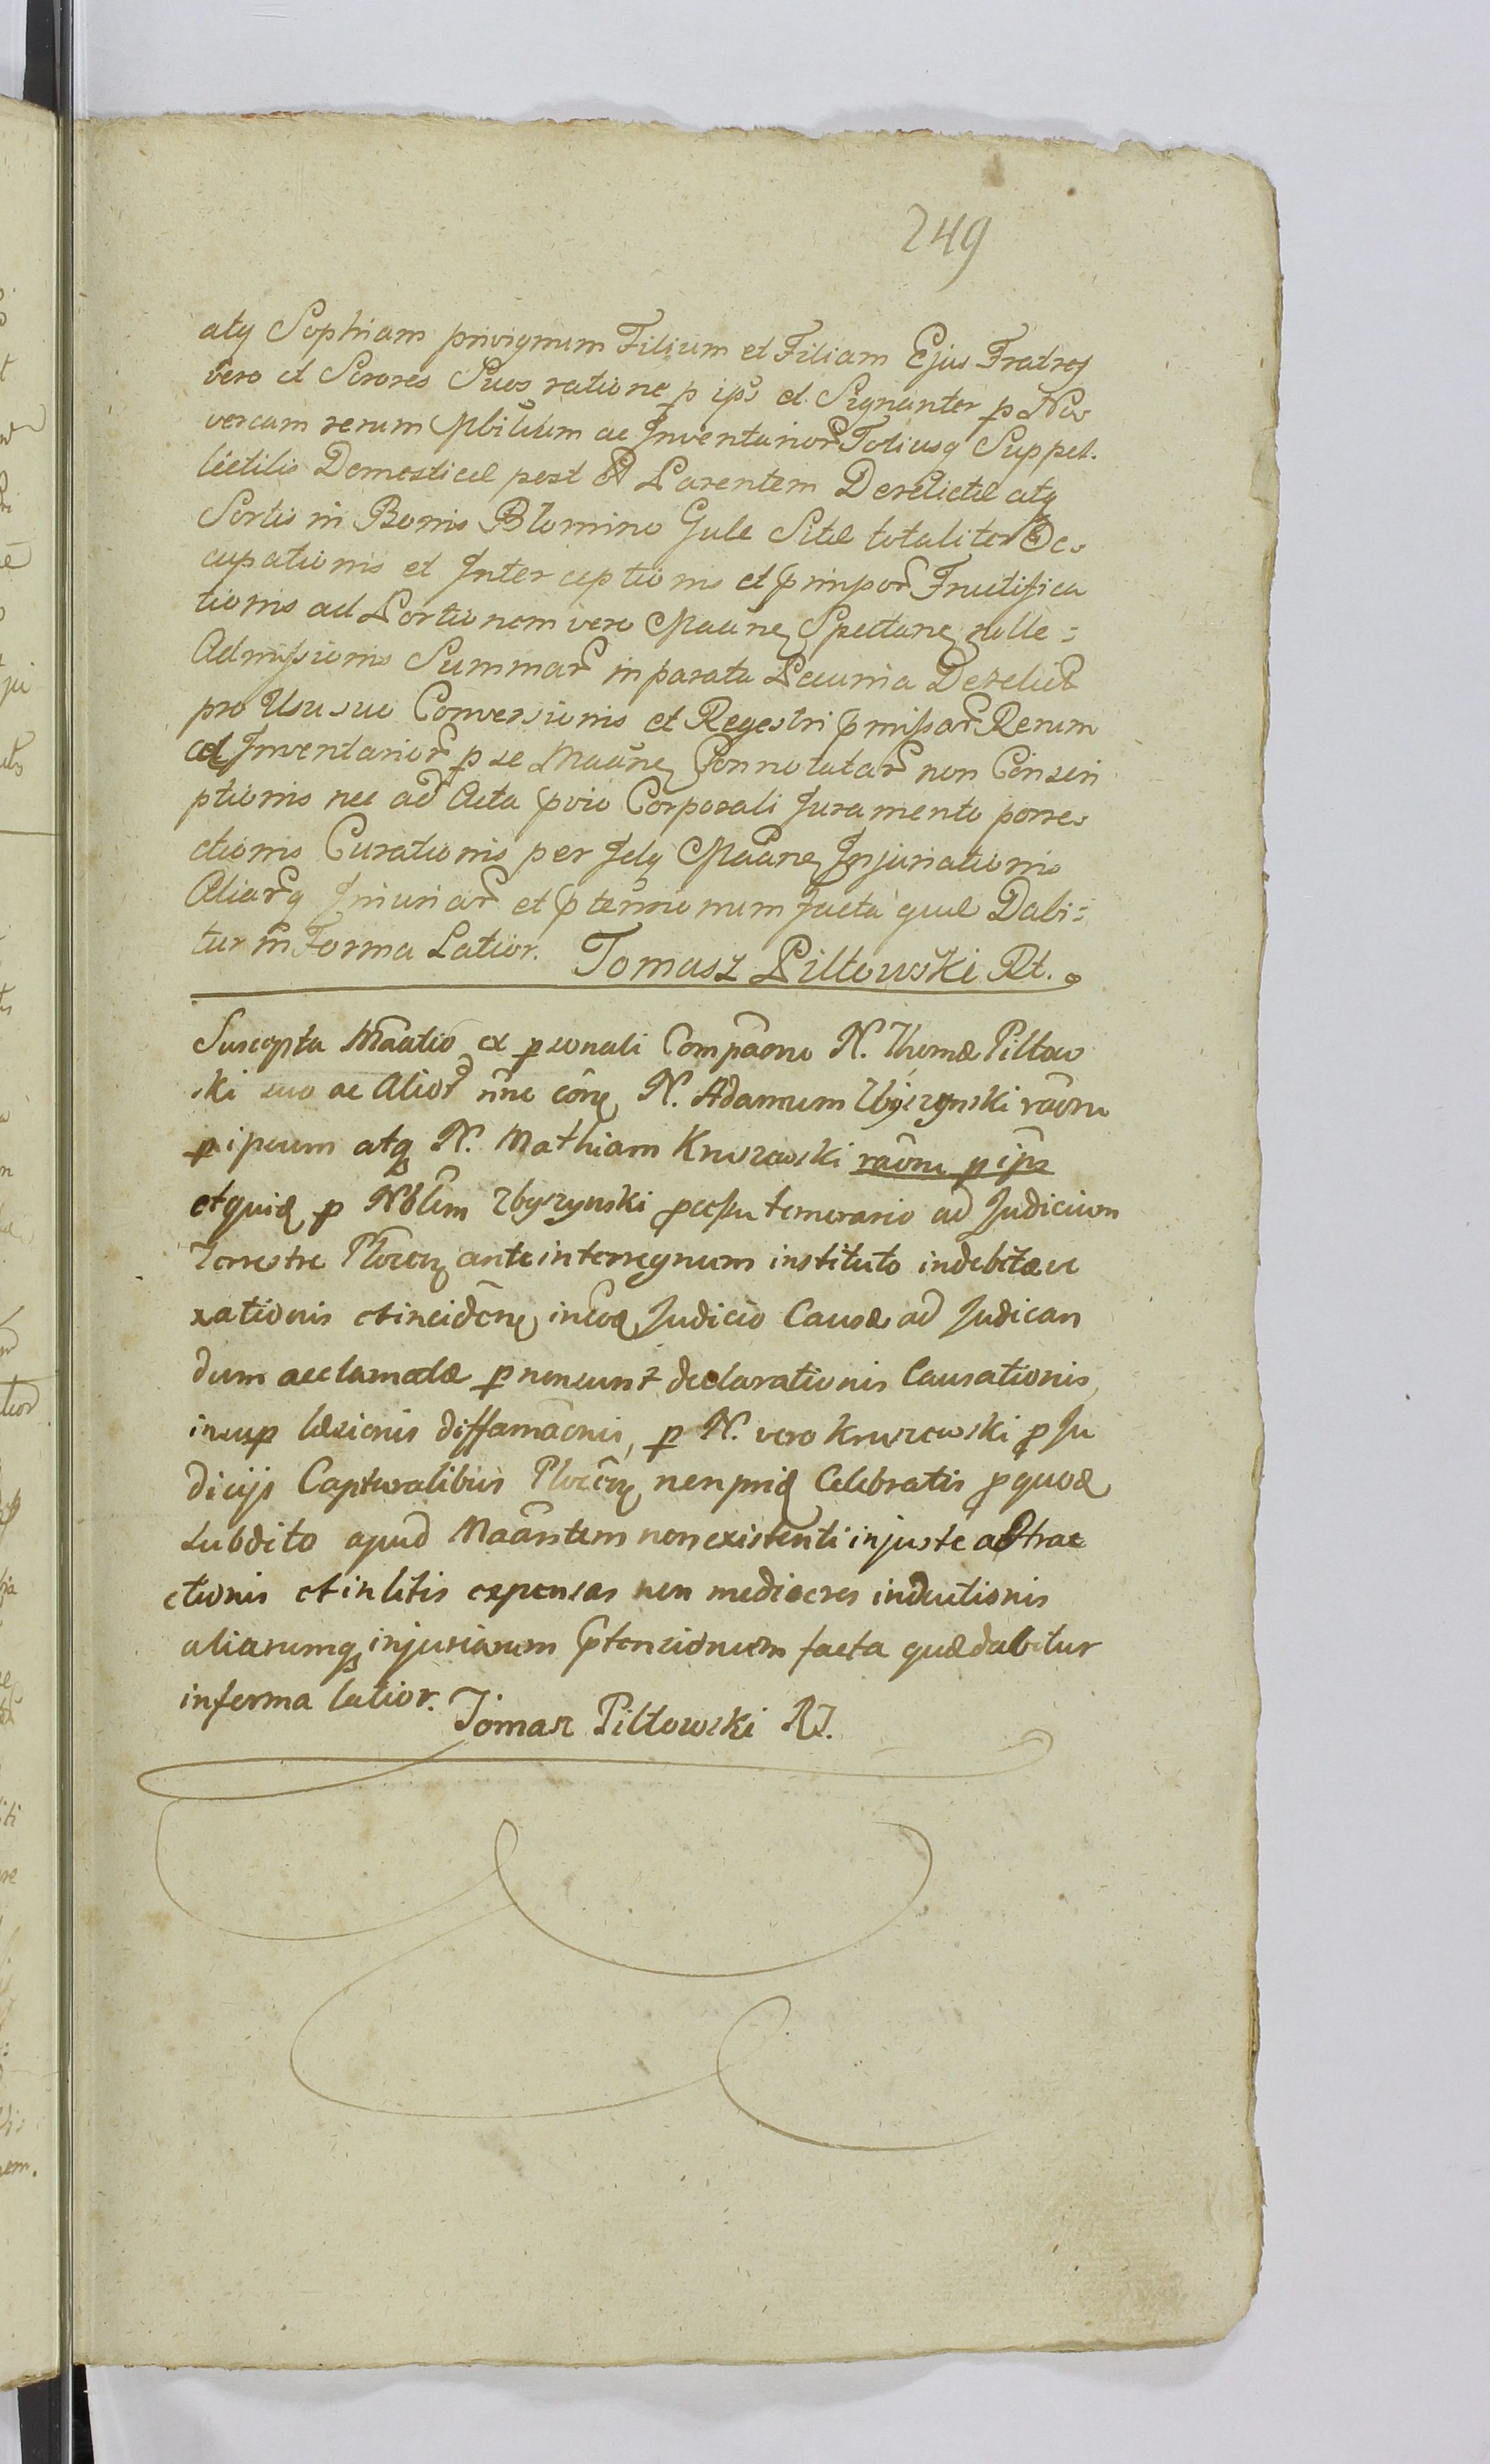 249
atq Sophiam privignum Filium et Filiam Ejus Fratres
vero et Sorores Suos ratione p ips et Signanter p No
vercam rerum Mbilium ac Inventarior Totiusq Suppel
lictilis Domesticæ post Parentem Derelictæ atq
Sortis in Bonis Blomino Gule Sitæ totaliter Oc
cupationis et Interceptionis et p impor Fructifica
tionis ad Portionem vero Maane Spectane nolle
Admissionis Summar in parata Pecunia Derelict
pro Usu suo Conversionis et Regestri pmissar Rerum
et Inventarior p se Maane Connotatar non Conscri
ptionis nec ad Acta pvio Corporali Juramento porre
ctionis Curationis per Idq Maane Injuriationis
Aliarq Iniuriar et ptensionum facta quæ Dabi=
tur in Forma Latior. Tomasz Piltowski Rt.
Suscepta Maatio ex psonali Compaone N. Thomæ Piltow
ski suo ac Alior nne cone N. Adamum Zbyszynski raone
p ipsum atq N. Mathiam Kruszewski raone p ips
et quid p Nblem Zbyszynski pcessu temerario ad Judicium
Terrestre Plocen ante interregnum instituto indebitæ ve
xationis et inciden in eod Judicio Causæ ad Judican
dum acclamatæ p non sunt declarationis Causationis,
insup læsionis diffamaonis, p N. vero Kruszewski p Ju
dicijs Capturalibus Plocen nen prid Celebratis p quod
subdito apud Maantem non existenti injuste abstrac
ctionis et in litis expensas non mediocres inductionis
aliarumq injuriarum ptensionum facta quæ dabitur
in forma latior. Tomasz Piltowski RT.